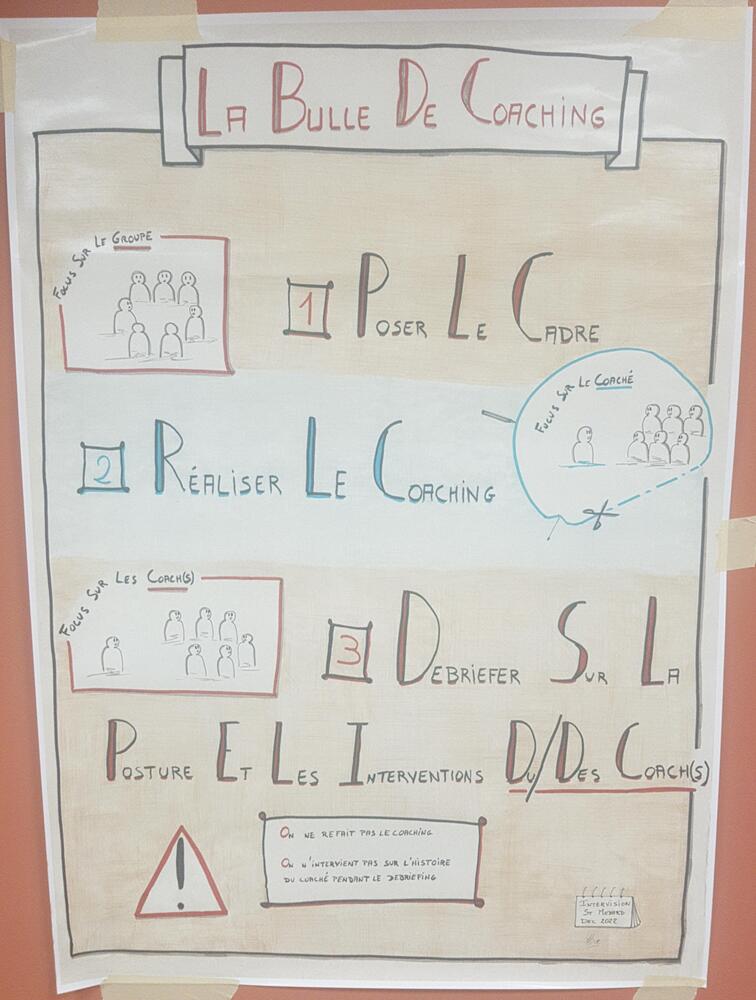 La Bulle De Coaching
Focus Sur Le Groupe
1 Poser Le Cadre
Focus Sur Le Coaché
2 Réaliser Le Coaching
Focus Sur Les Coach(s)
3 Debriefer Sur La
Posture Et Les Interventions Du/Des Coach(s)
!
On ne refait pas le coaching
On n'intervient pas sur l'histoire
du coaché pendant le debriefing
Intervision
St
Dec 2022